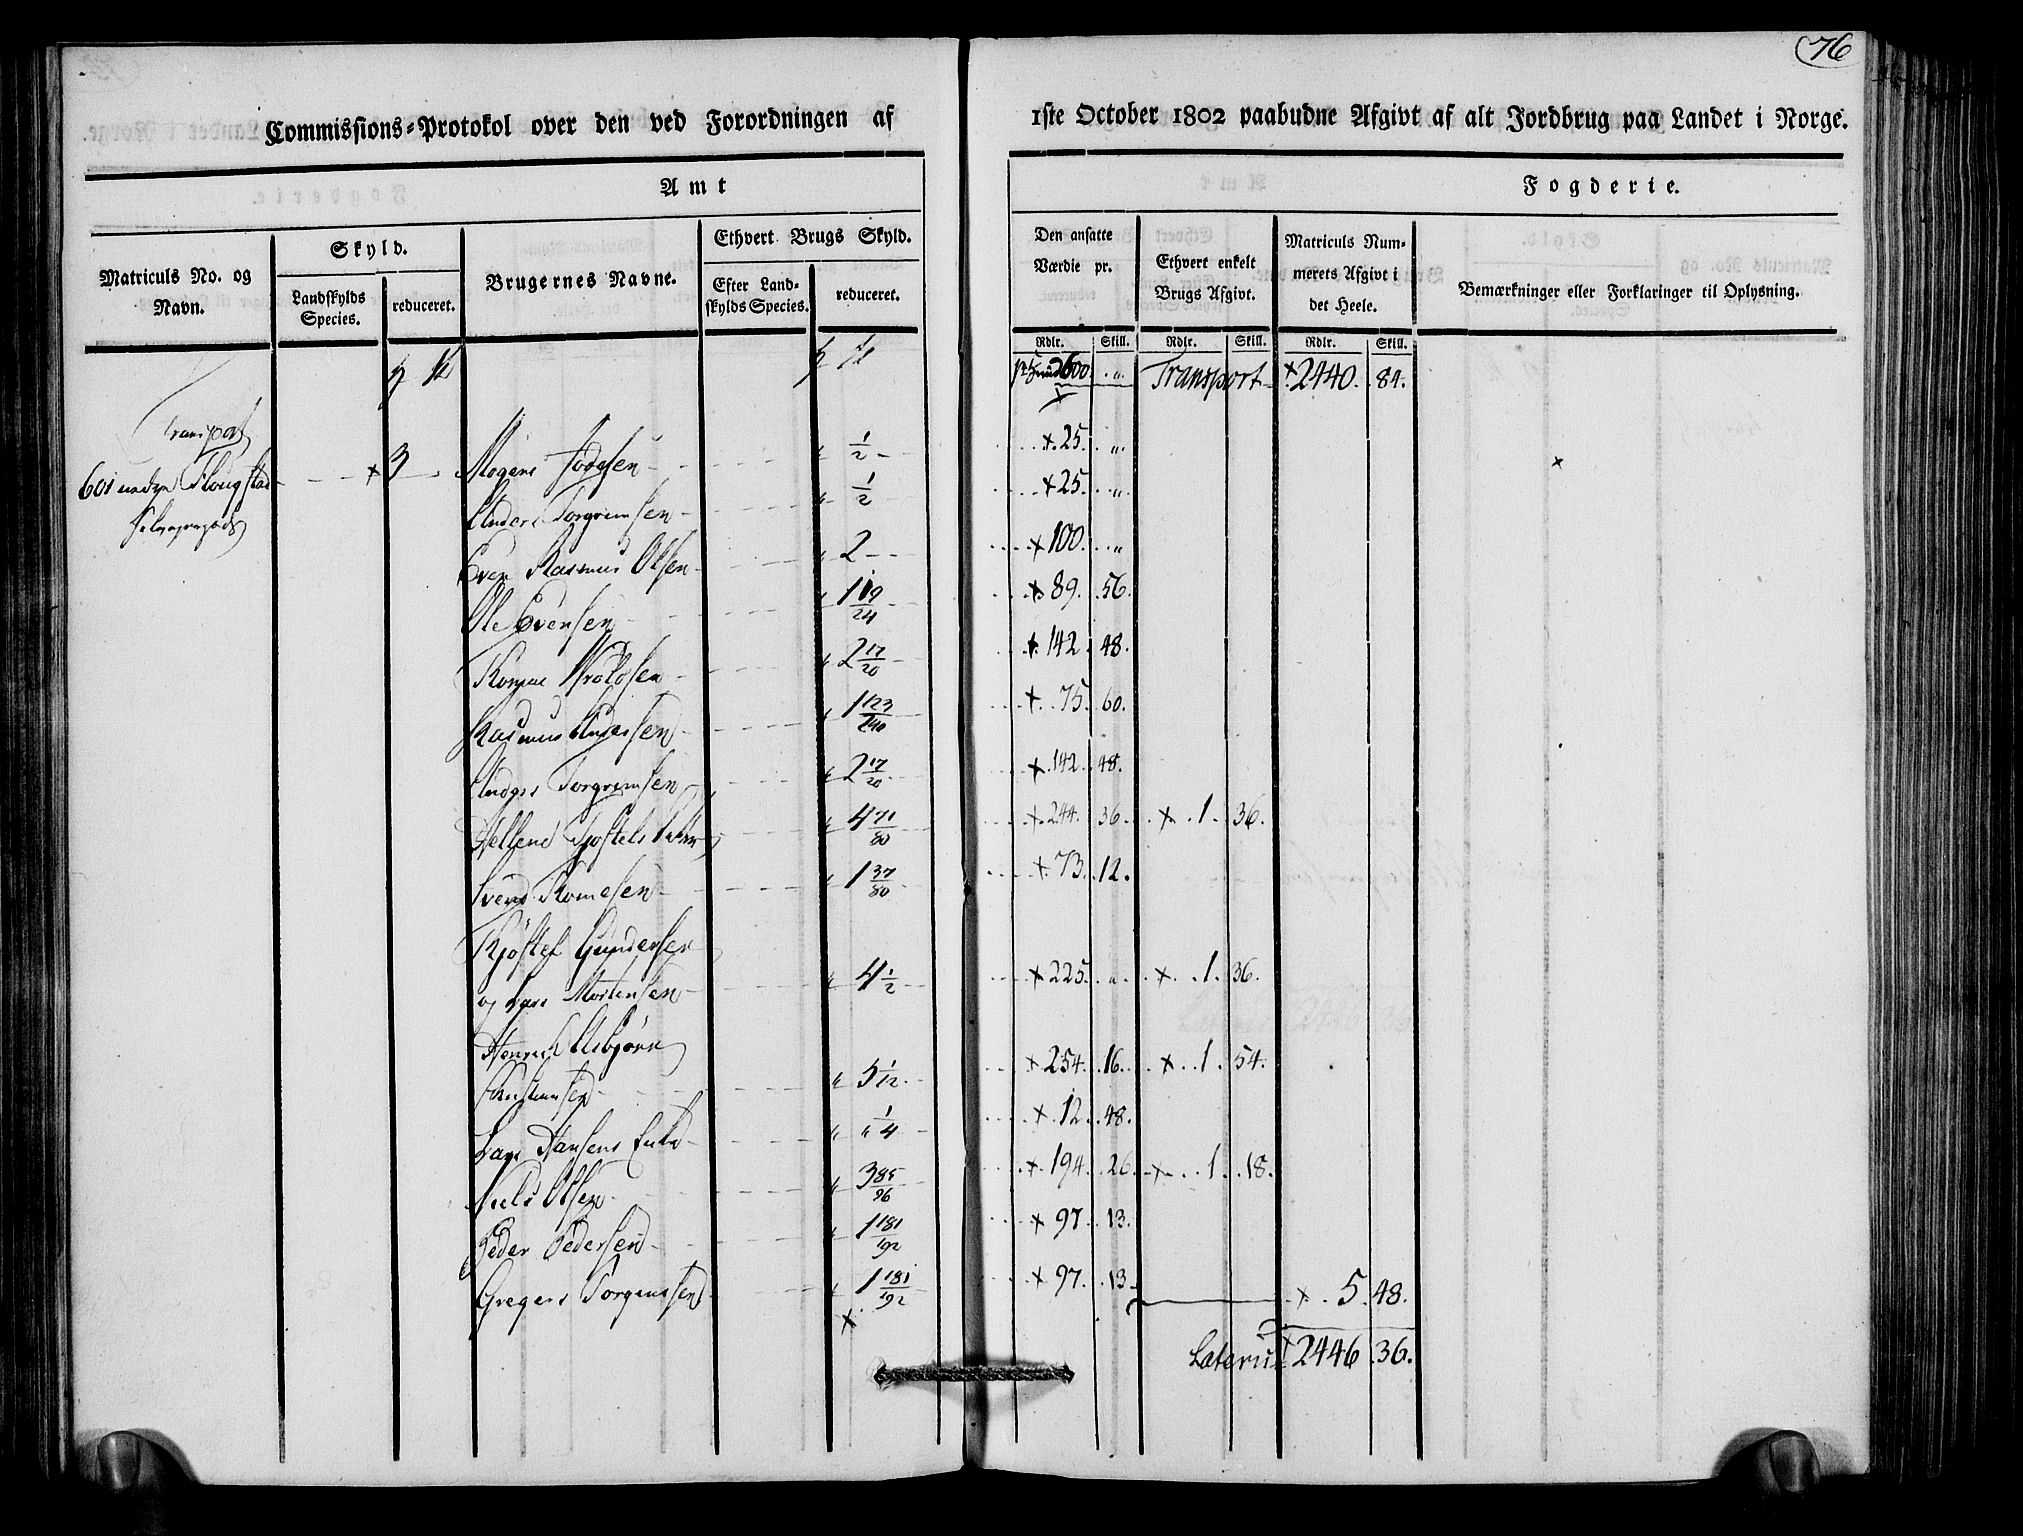 76
Commissions-Protokol over den ved Forordningen af 1ste October 1802 paabudne Afgivt af alt Jordbrug paa Landet i Norge.
Amt Fogderie.
Matriculs No. og Navn.
Skyld.
Landskylds Species.
reduceret.
Brugernes Navne.
Ethvert Brugs Skyld.
Efter Landskylds Species.
reduceret.
Den ansatte Værdie pr.
Ethvert enkelt Brugs Afgivt.
Matriculs Nummerets Afgivt i det Heele.
Bemærkninger eller Forklaringer til Oplysning.
Rdlr. Skill. Rdlr. Skill. Rdlr. Skill.
600 " Transport 2440. 84.
Transport
601 3 Mogens 1/2 25. "
Anders Torgrimsen 1/2 25. "
Even Rasmus Olsen 2 100. "
Ole Evensen 1 19/24 89. 56.
2 17/20 142 48.
Rasmus Andersen 1 123/240 75. 60.
Anders Torgrimsen 2 17/20 142. 48.
4 71/80 244. 36 1. 36.
Svend 1 37/80 73. 12.
Kjøstel Gundersen
og Lars Mortensen 4 1/2 225. " 1. 36.
Henrich Asbjørn
Christiansen 5 1/12 254. 16. 1. 54.
Lars Hansens Enke " 1/4 12. 48.
Niels Olsen 3 85/96 194. 26. 1. 18.
Peder Pedersen 1 181/192 97. 13.
Gregers 1 181/192 97. 13 5. 48.
Lateris 2446. 36.